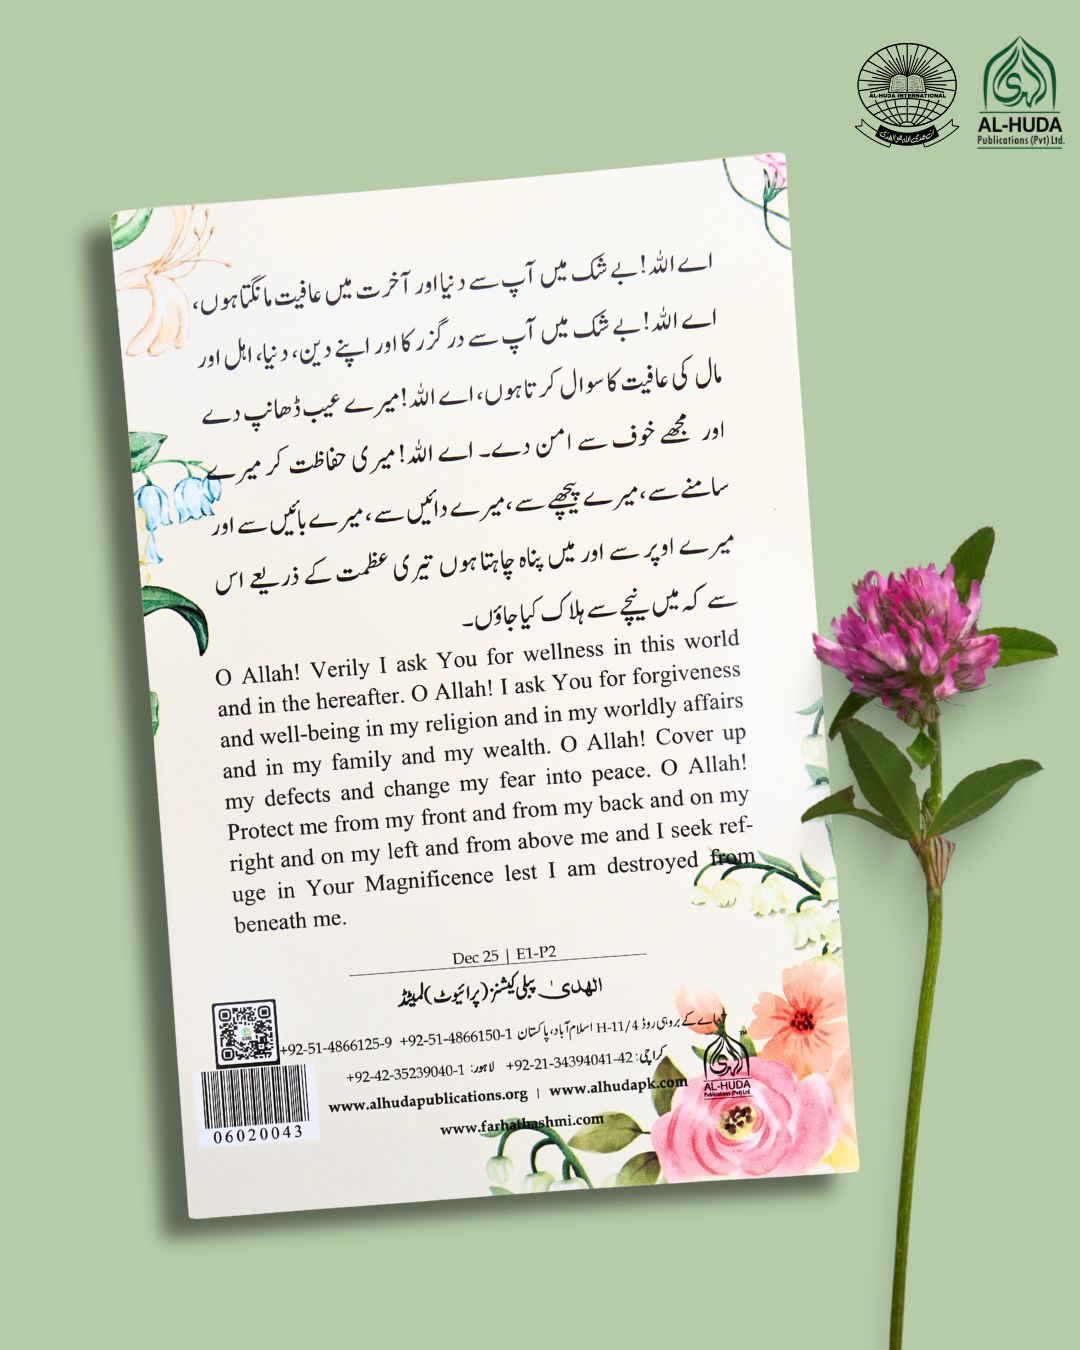 AL-HUDA INTERNATIONAL
AL-HUDA
Publications (Pvt) Ltd.
اے اللہ! بے شک میں آپ سے دنیا اور آخرت میں عافیت مانگتا ہوں،
اے اللہ! بے شک میں آپ سے درگزر کا اور اپنے دین، دنیا، اہل اور
مال کی عافیت کا سوال کرتا ہوں، اے اللہ! میرے عیب ڈھانپ دے
اور مجھے خوف سے امن دے۔ اے اللہ! میری حفاظت کر میرے
سامنے سے، میرے پیچھے سے، میرے دائیں سے، میرے بائیں سے اور
میرے اوپر سے اور میں پناہ چاہتا ہوں تیری عظمت کے ذریعے اس
سے کہ میں نیچے سے ہلاک کیا جاؤں۔
O Allah! Verily I ask You for wellness in this world
and in the hereafter. O Allah! I ask You for forgiveness
and well-being in my religion and in my worldly affairs
and in my family and my wealth. O Allah! Cover up
my defects and change my fear into peace. O Allah!
Protect me from my front and from my back and on my
right and on my left and from above me and I seek ref-
uge in Your Magnificence lest I am destroyed from
beneath me.
Dec 25 | E1-P2
الھدیٰ پبلی کیشنز (پرائیوٹ) لمیٹڈ
اے کے بروہی روڈ H-11/4 اسلام آباد، پاکستان +92-51-4866150-1 +92-51-4866125-9
کراچی: +92-21-34394041-42 لاہور: +92-42-35239040-1
www.alhudapublications.org | www.alhudapk.com
www.farhathashmi.com
06020043
AL-HUDA
Publications (Pvt) Ltd.